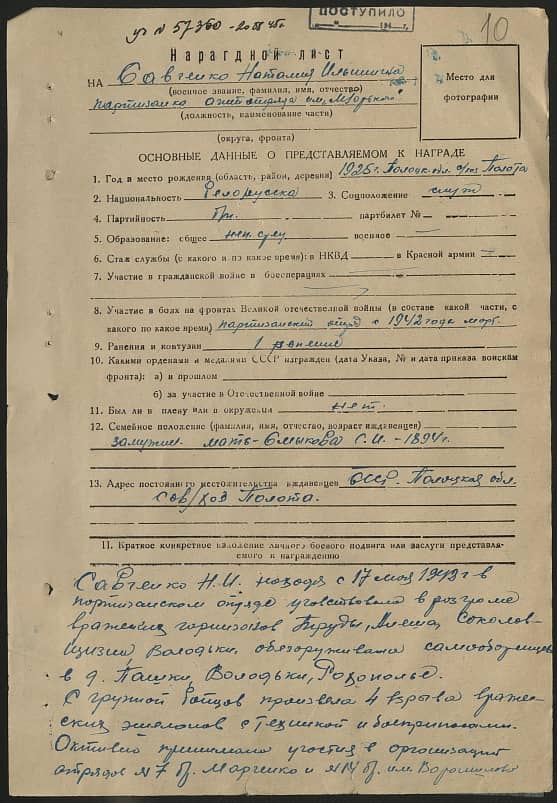 уг № 57360 - 20
ПОСТУПИЛО
10
Нарагдной лист
НА Савченко Наталия Ильинична
(военное звание, фамилия, имя, отчество)
партизанка отряда им. М. Горького
(должность, наименование части)
(округа, фронта)
Место для
фотографии
ОСНОВНЫЕ ДАННЫЕ О ПРЕДСТАВЛЯЕМОМ К НАГРАДЕ
1. Год и место рождения (область, район, деревня) 1925 г. Полоцк. обл. с/хоз Полота
2. Национальность Белорусска 3. Соцположение служ
4. Партийность партбилет № —
5. Образование: общее нен. сред военное —
6. Стаж службы (с какого и по какое время): в НКВД — в Красной армии —
7. Участие в гражданской войне в боеоперациях —
8. Участие в боях на фронтах Великой отечественной войны (в составе какой части, с
какого по какое время) партизанский отряд с 1942 года
9. Ранения и контузии 1 ранение
10. Какими орденами и медалями СССР награжден (дата Указа, № и дата приказа войскам
фронта): а) в прошлом
б) за участие в Отечественной войне
11. Был ли в плену или в окружении нет.
12. Семейное положение (фамилия, имя, отчество, возраст иждавенцев)
замужем. мать - С. И. - 1894 г.
13. Адрес постоянного местожительства иждавенцев БССР. Полоцкая обл.
Сов/хоз Полота.
II. Краткое конкретное изложение личного боевого подвига или заслуги представля-
емого к награждению
Савченко Н. И. находя с 17 мая 1942 г в
партизанском отряде участвовала в розгроме
вражеских горнизонов Труды, Соколов-
щизна Володьки, обезоруживала самооборонцев
в д. Пашки, Володьки,
С группой бойцов произвела 4 взрыва враже-
ских эшелонов с техникой и боеприпасами.
Октивно принимала участия в организации
отрядов № 7 бр. Марченко и № 14 бр. им. Ворошилова